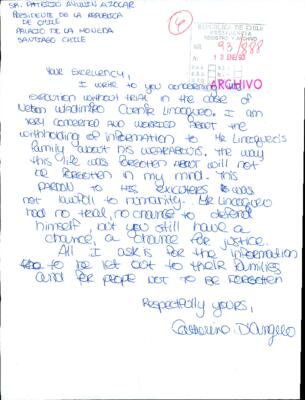 SR. PATRICIO AYLWIN AZOCAR
PRESIDENTE DE LA REPUBLICA
DE CHILE
PALACIO DE LA MONEDA
SANTIAGO CHILE
6
REPUBLICA DE CHILE
PRESIDENCIA
REGISTRO Y ARCHIVO
NR. 93/888
A 13 ENE 93
ARCHIVO
YOUR EXCELLENCY,
I write to you concerning the
execution without trial in the case of
Nelson Wladimiro Curiñir Lincoqueo. I am
very concerned and worried about the
withholding of information to Mr Lincoqueo's
family about his weareabouts. The way
this life was forgoten about will not
be forgoten in my mind. This
pardon to his excuters was
not lawfull to humanity. Mr Lincoqueo
had no trial, no chance to defend
himself, but you still have a
chance, a chance for justice.
All I ask is for the information
to be let out to their families
and for people not to be forgoten
Respectfully yours,
Catterina D'Angelo